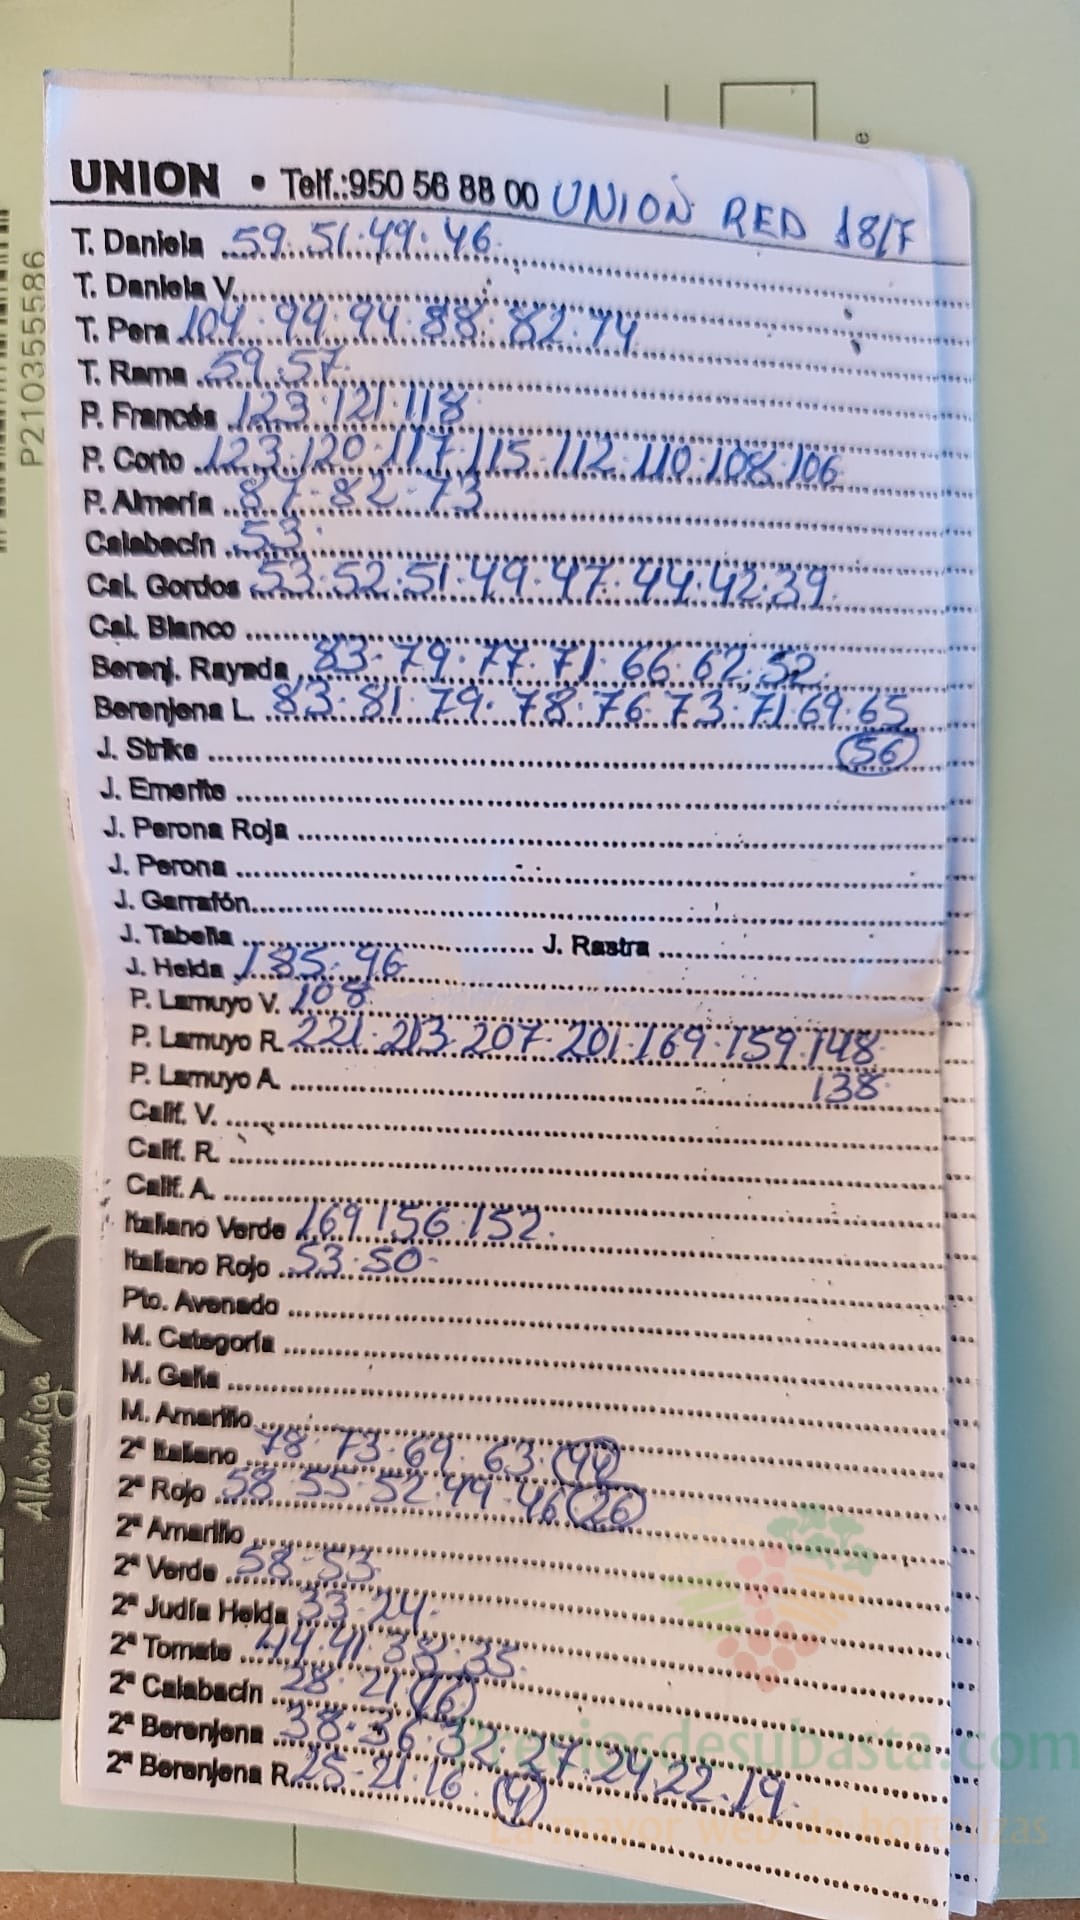 UNION • Telf.:950 56 88 00 UNION RED 18/7
T. Daniela 59.51.49.46.
T. Daniela V.
T. Pera 104.99.94.88.82.74
T. Rama 59.57
P. Francés 123.121.118
P. Corto 123.120.117.115.112.110.108.106
P. Almería 87-82-73
Calabacín 53.
Cal. Gordos 53.52.51.49.47.44.42.39
Cal. Blanco
Berenj. Rayada 83-79.77.71.66.62.52.
Berenjena L. 83.81.79.78.76.73.71.69.65
J. Strike (56)
J. Emerite
J. Perona Roja
J. Perona
J. Garrafón
J. Tabella J. Rastra
J. Helda 185.96
P. Lamuyo V. 108
P. Lamuyo R. 221.213.207.201.169.159.148
P. Lamuyo A. 138
Calif. V.
Calif. R.
Calif. A.
Italiano Verde 169.156.152.
Italiano Rojo 53.50-
Pto. Avenado
M. Categoría
M. Galia
M. Amarillo
2ª Italiano 78.73.69.63.(44)
2ª Rojo 58.55-52.49.46(26)
2ª Amarillo
2ª Verde 58-53
2ª Judía Helda 33-24.
2ª Tomate 44.41.38.35.
2ª Calabacín 28.21(16)
2ª Berenjena 38-36.32.27.24.22.19.
2ª Berenjena R. 25-21.16 (4)
P210355586
Alhóndiga
Preciosdesubasta.com
La mayor web de hortalizas